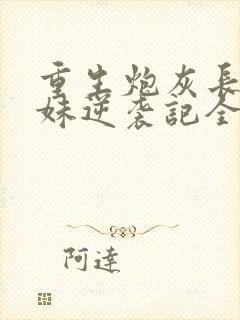 重生炮灰長
妹逆袭記全
阿達